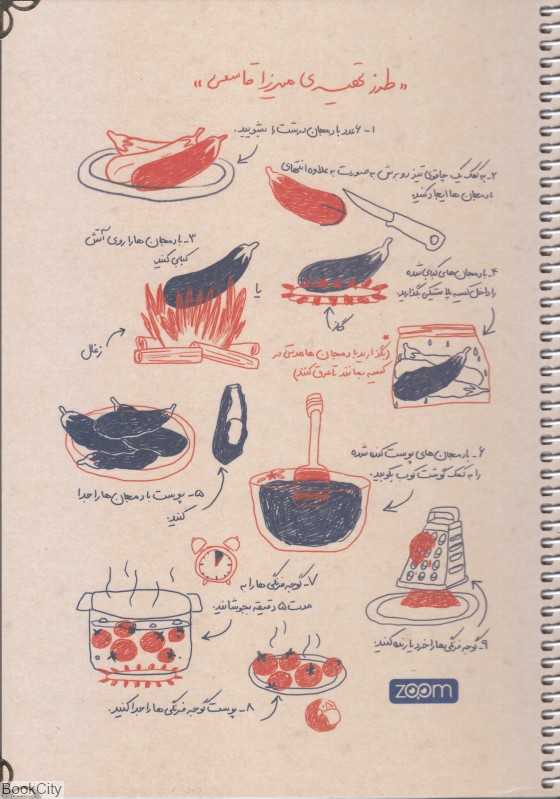 «طرز تهیه‌ی میرزا قاسمی»
۱- ۶ عدد بادمجان درشت را بشویید.
۲- به کمک یک چاقوی تیز دو برش به صورت به علاوه انتهای
بادمجان ها ایجاد کنید
۳- بادمجان ها را روی آتش
کبابی کنید
یا
زغال
گاز
۴- بادمجان های کبابی شده
را داخل کیسه پلاستیکی بگذارید.
(بگذارید بادمجان ها مدتی در
کیسه بمانند تا عرق کنند)
۵- پوست بادمجان ها را جدا
کنید.
۶- بادمجان های پوست کنده شده
را به کمک گوشت کوب بکوبید.
۷- گوجه فرنگی ها را به
مدت ۵ دقیقه بجوشانید.
۸- پوست گوجه فرنگی ها را جدا کنید.
۹- گوجه فرنگی ها را خرد یا رنده کنید.
zoom
BookCity